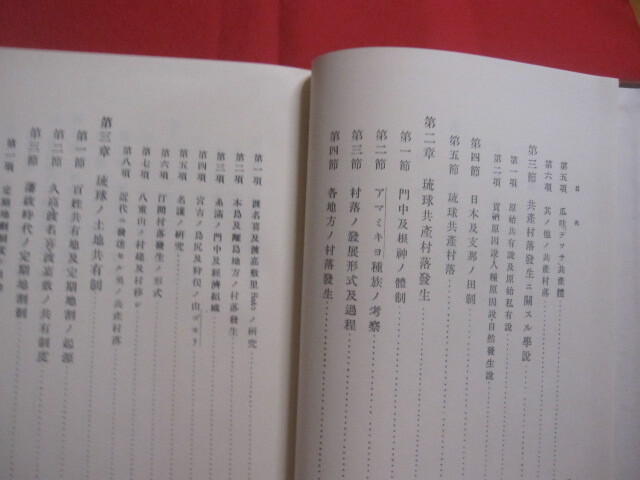 目次
第五項 瓜哇デッサ共產體
第六項 其ノ他ノ共產村落
第三節 共產村落發生ニ關スル學說
第一項 原始共有說及原始私有說
第二項 貢納原因說人種原因說自然發生說
第四節 日本及支那ノ田制
第五節 琉球共產村落
第二章 琉球共產村落發生
第一節 門中及根神ノ體制
第二節 アマミキヨ種族ノ考察
第三節 村落ノ發展形式及過程
第四節 各地方ノ村落發生
第一項 渡名喜及渡嘉敷里Satoノ硏究
第二項 本島及離島地方ノ村落發生
第三項 糸滿ノ門中及經濟組織
第四項 宮古ノ島尻及狩俣ノ
第五項 名護ノ硏究
第六項 百間村落發生ノ形式
第七項 八重山ノ村建及村移シ
第八項 近代ニ發達セル ノ共產村落
第三章 琉球ノ土地共有制
第一節 百姓共有地及定期地割ノ起源
第二節 久高渡名喜渡嘉敷ノ共有制度
第三節 藩政時代ノ定期地割制
第一項 定期地割制度